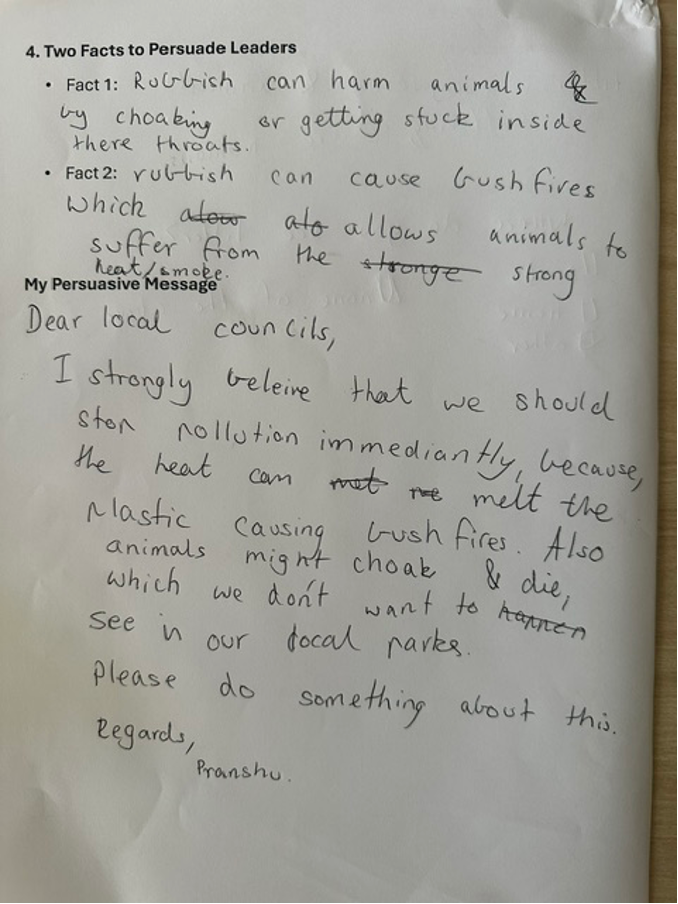 4. Two Facts to Persuade Leaders
• Fact 1: Rubbish can harm animals &
by choaking or getting stuck inside
there throats.
• Fact 2: rubbish can cause bush fires
which alow alo allows animals to
suffer from the stronge strong
heat/smoke.
My Persuasive Message
Dear local councils,
I strongly beleive that we should
stop pollution immediantly, because,
the heat can met me melt the
plastic causing bush fires. Also
animals might choak & die,
which we don't want to happen
see in our local parks.
Please do something about this.
Regards,
Pranshu.